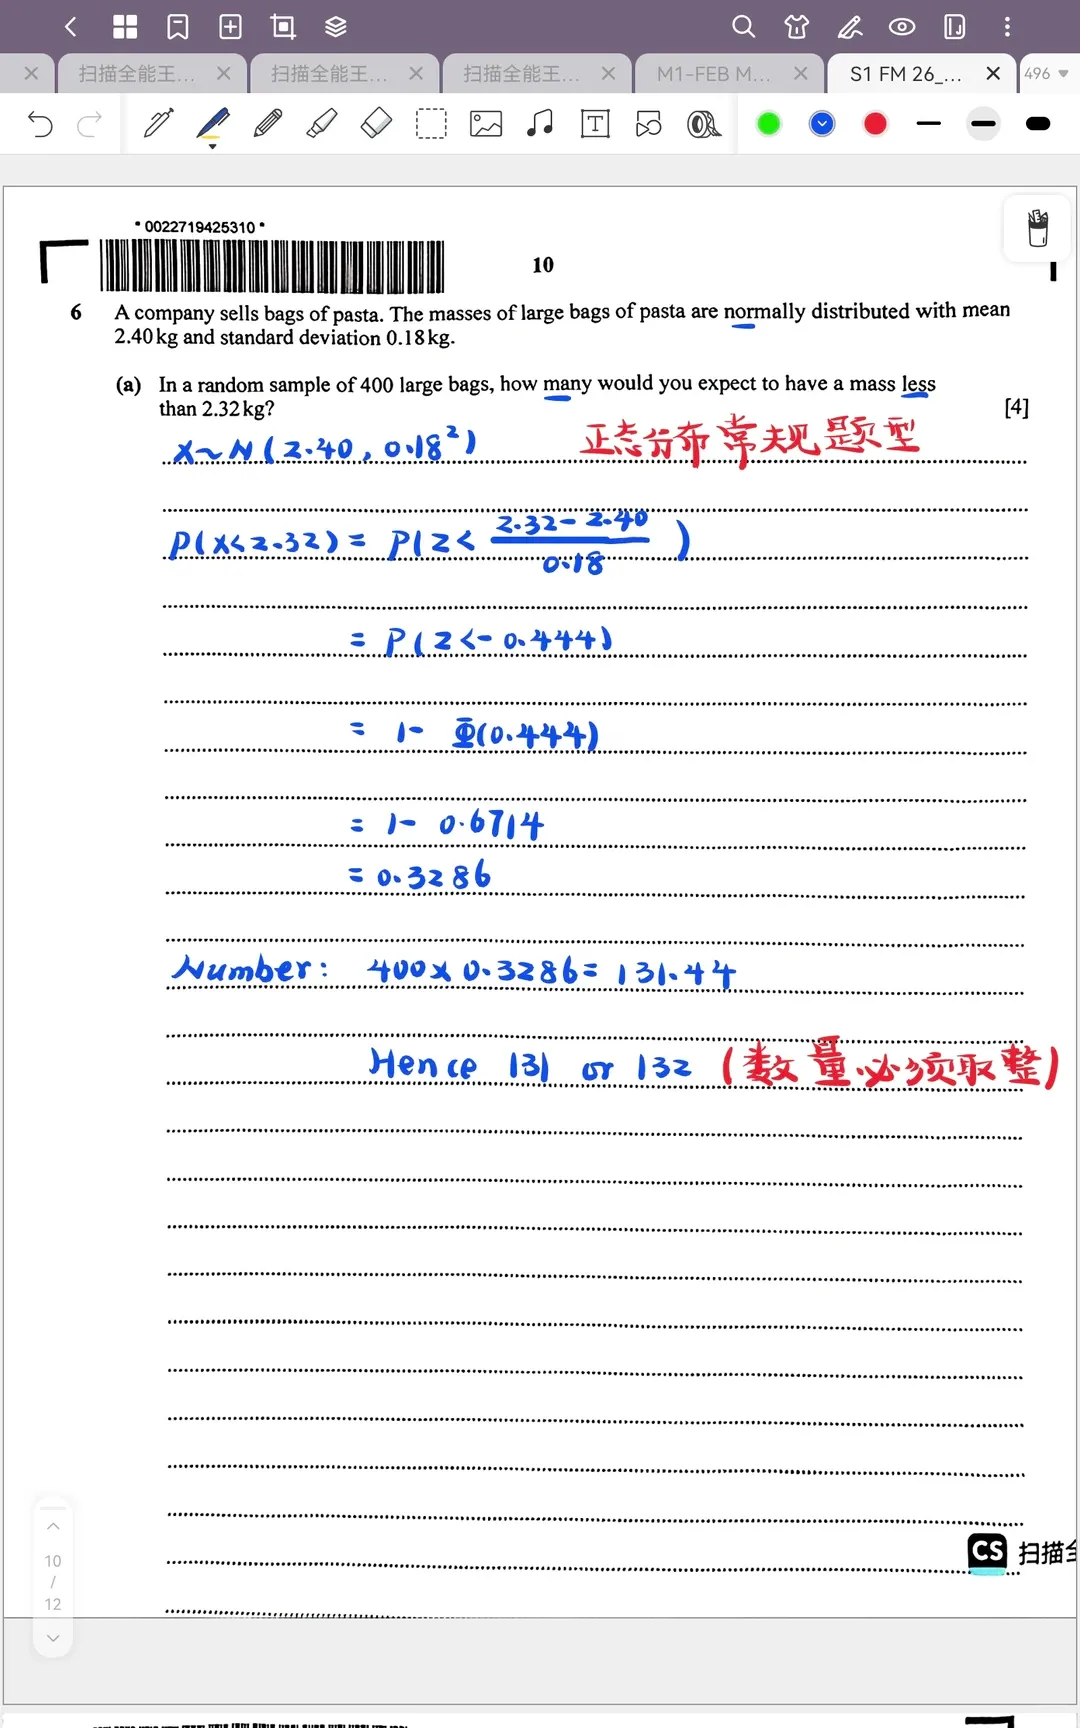 扫描全能王...
扫描全能王...
扫描全能王...
M1-FEB M...
S1 FM 26_...
496
* 0022719425310 *
10
6 A company sells bags of pasta. The masses of large bags of pasta are normally distributed with mean
2.40 kg and standard deviation 0.18 kg.
(a) In a random sample of 400 large bags, how many would you expect to have a mass less
than 2.32 kg? [4]
X~N(2.40, 0.18²) 正态分布常规题型
P(X<2.32) = P(Z< (2.32-2.40)/0.18 )
= P(Z<-0.444)
= 1- Φ(0.444)
= 1- 0.6714
= 0.3286
Number: 400 x 0.3286 = 131.44
Hence 131 or 132 (数量必须取整)
CS 扫描全
10
/
12